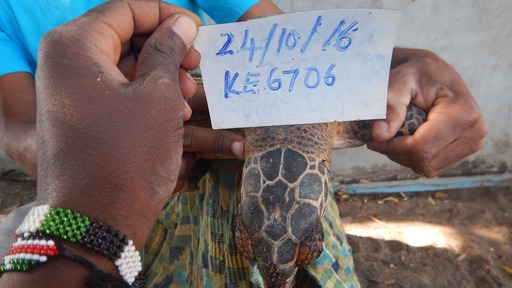 24/10/16
KE6706